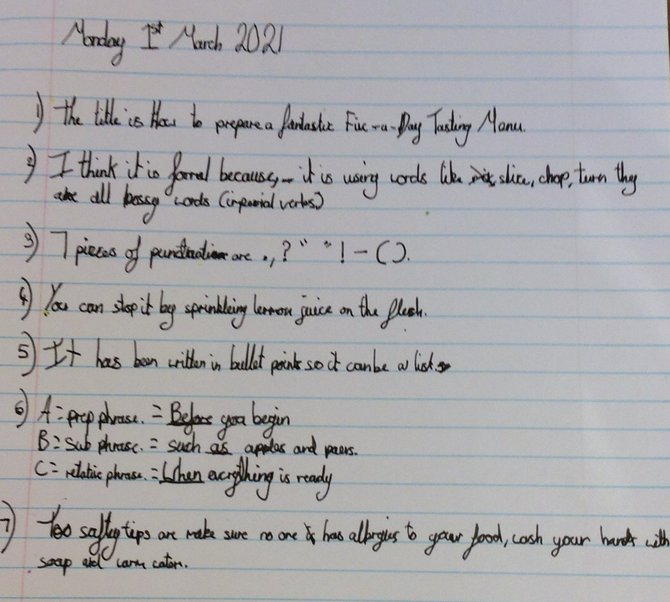 Monday 1st March 2021
1) The title is How to prepare a fantastic Five-a-Day Tasting Menu.
2) I think it is formal because, it is using words like slice, chop, turn they
are all bossy words (imperial verbs)
3) 7 pieces of punctuation are . , ? " " ! - ( ).
4) You can stop it by sprinkleing lemon juice on the flesh.
5) It has been written in bullet points so it can be a list
6) A = prep phrase. = Before you begin
B = sub phrase. = such as apples and pears.
C = relative phrase. = When everything is ready
7) Two saftey tips are make sure no one has allergies to your food, wash your hands with
soap and warm water.